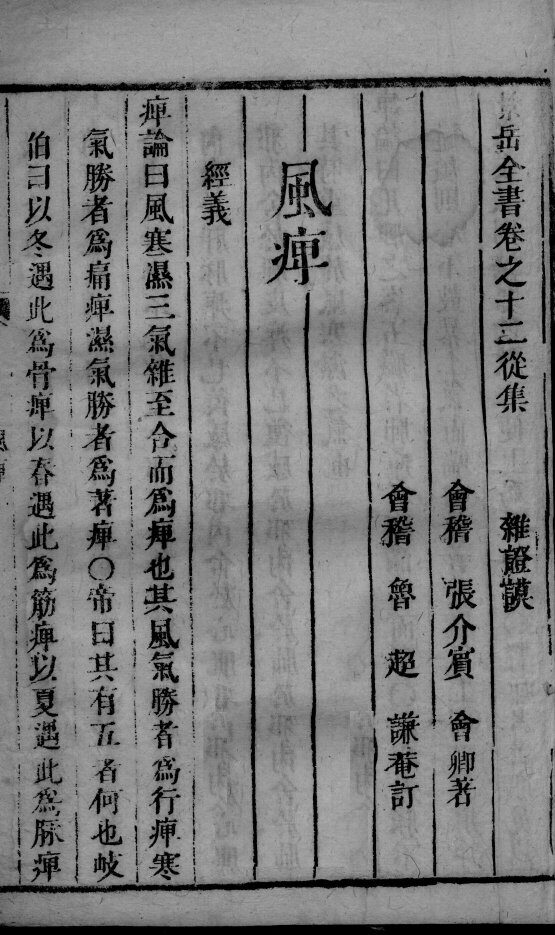 景岳全書卷之十二從集　雜證謨
會稽　張介賓　會卿著
會稽　魯　超　謙菴訂
風痺
經義
痺論曰風寒濕三氣雜至合而爲痺也其風氣勝者爲行痺寒
氣勝者爲痛痺濕氣勝者爲著痺○帝曰其有五者何也岐
伯曰以冬遇此爲骨痺以春遇此爲筋痺以夏遇此爲脉痺